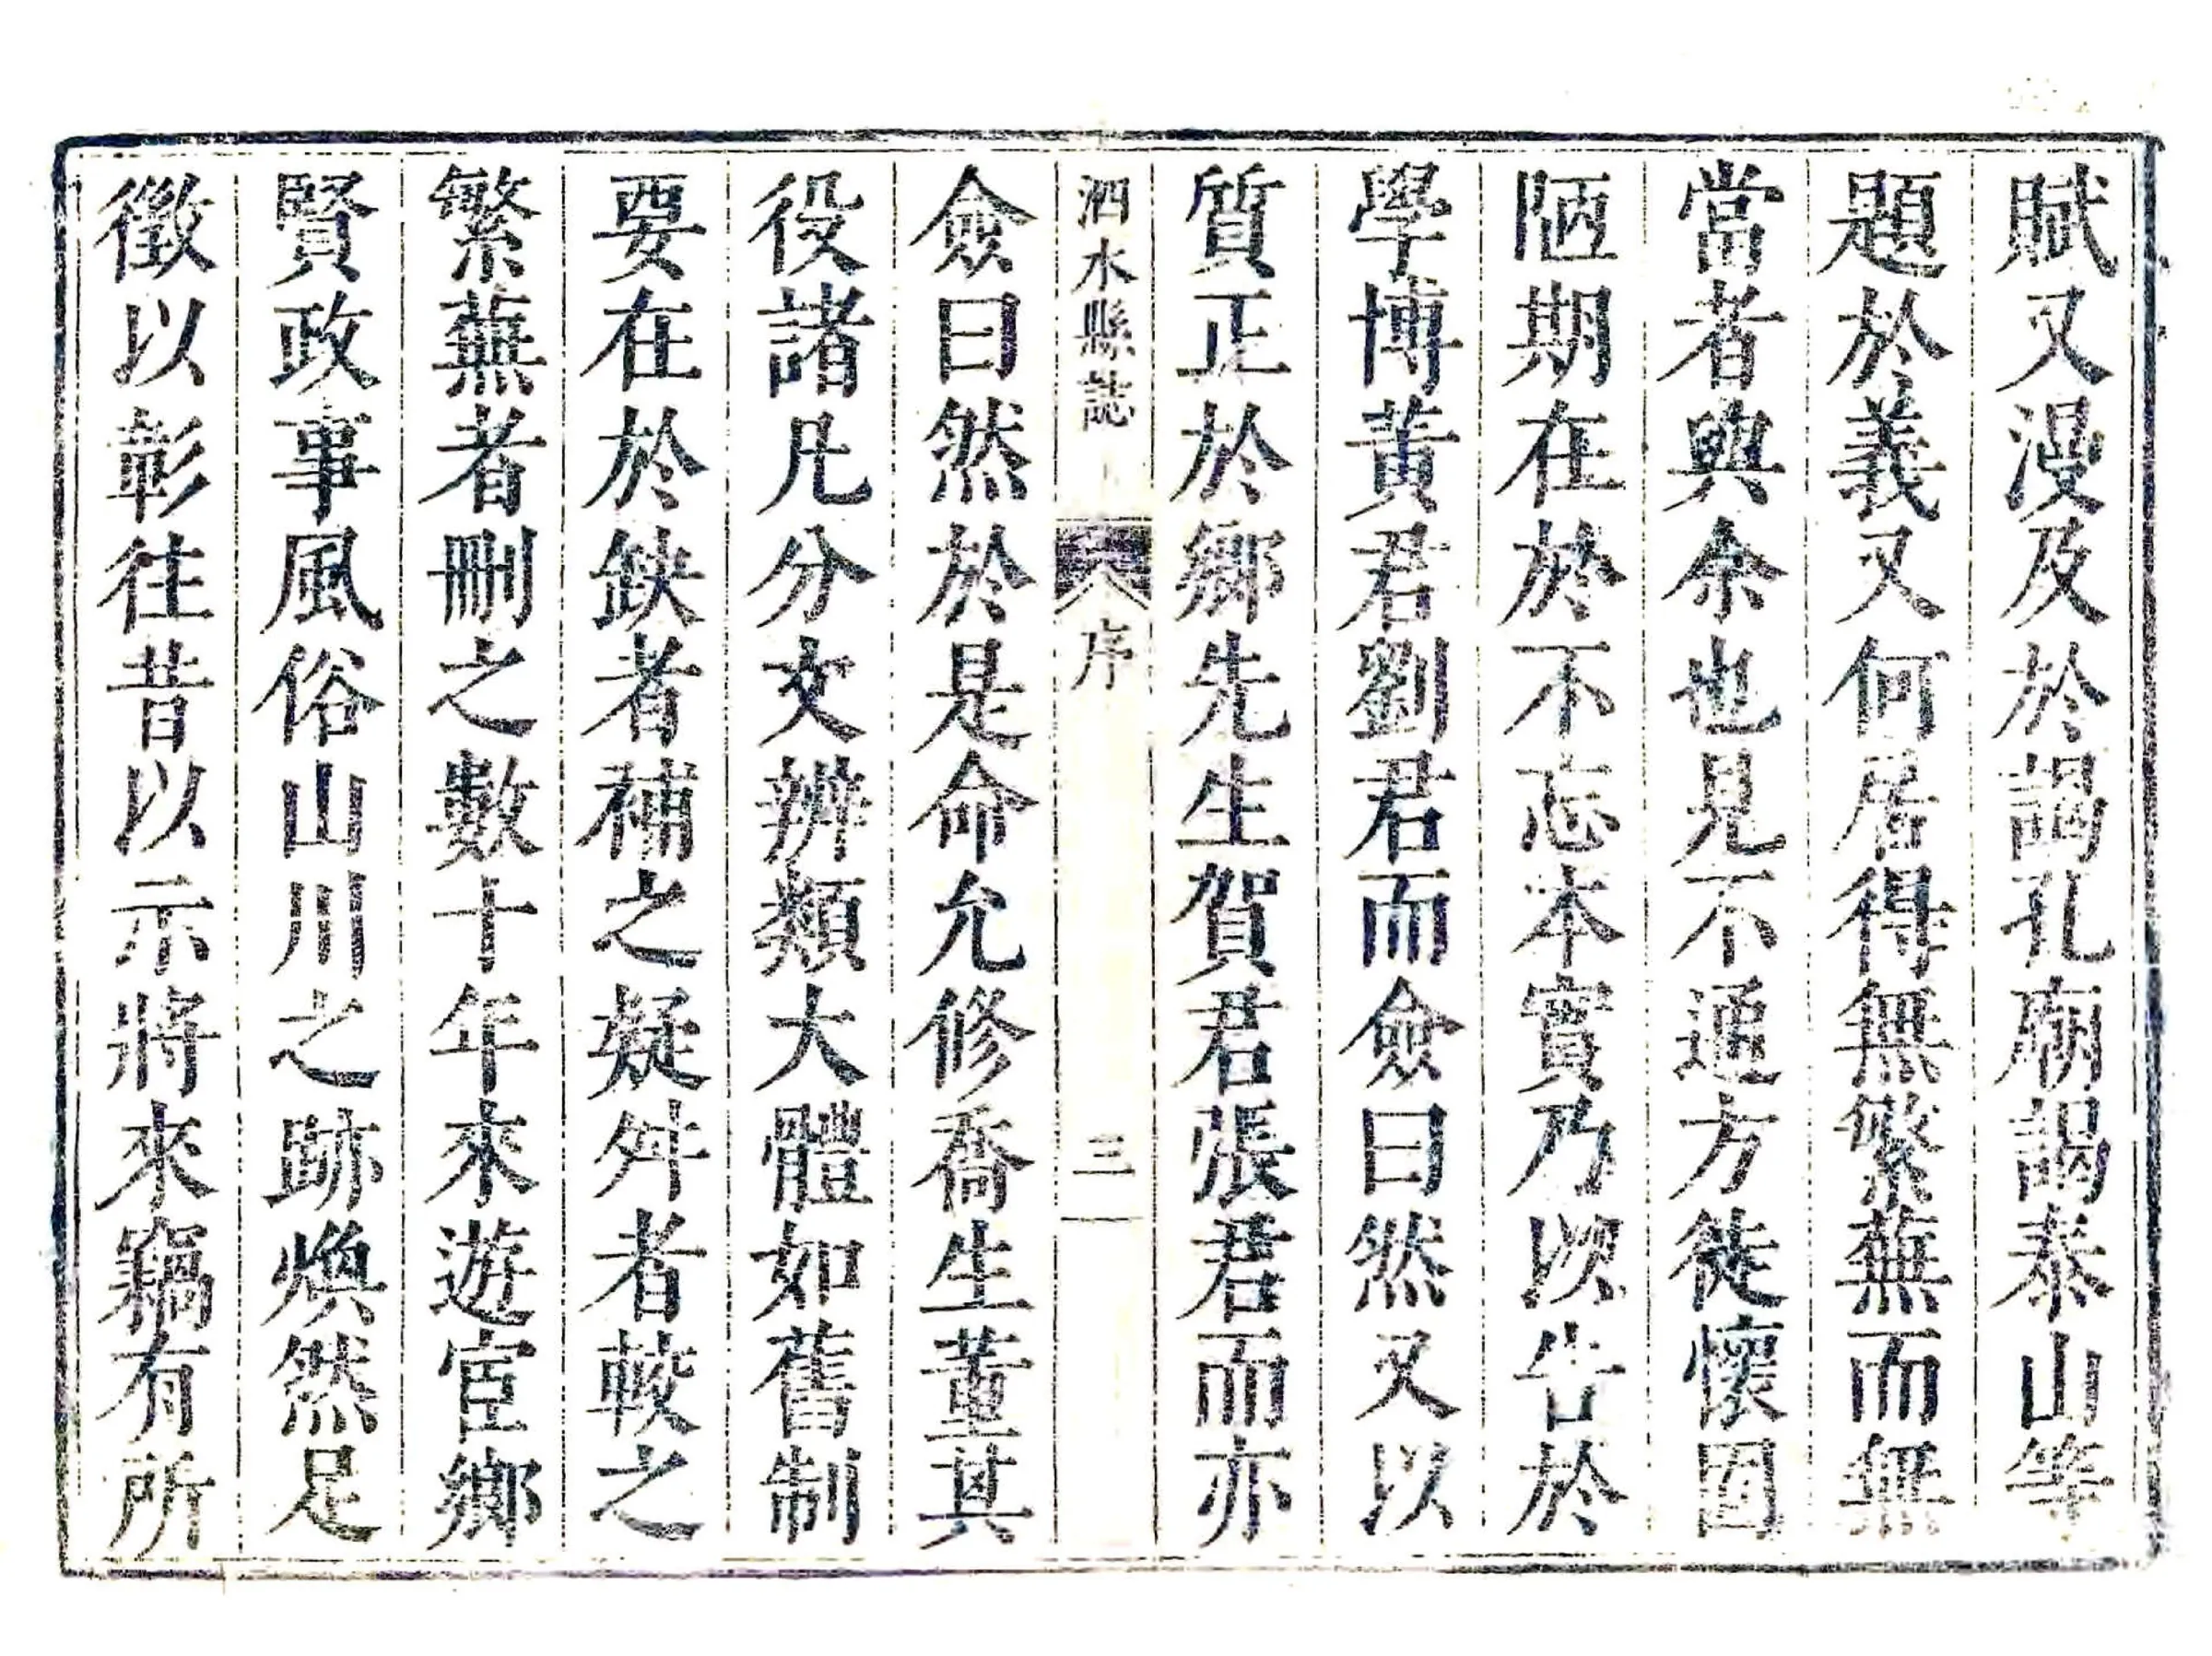 賦又漫及於謁孔廟謁泰山等
題於義又何居得無繁蕪而無
當者與余也見不通方徒懷固
陋期在於不忘本實乃以告於
學博黃君劉君而僉曰然又以
質正於鄉先生賀君張君而亦
泗水縣誌 序 三
僉曰然於是命允修喬生董其
役諸凡分文辨類大體如舊制
要在於缺者補之疑舛者較之
繁蕪者刪之數十年來遊宦鄉
賢政事風俗山川之跡煥然足
徵以彰往昔以示將來竊有所